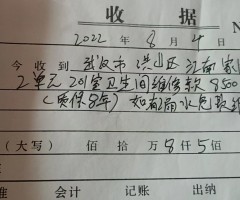 收 据
2022 年 8 月 4 日 N
今 收 到 武汉市 洪山区 江南家
2单元 201室卫生间维修款 8500
(质保8年) 如有漏水免款维
(大写) 佰 拾 万 8仟5佰
准 会计 记账 出纳